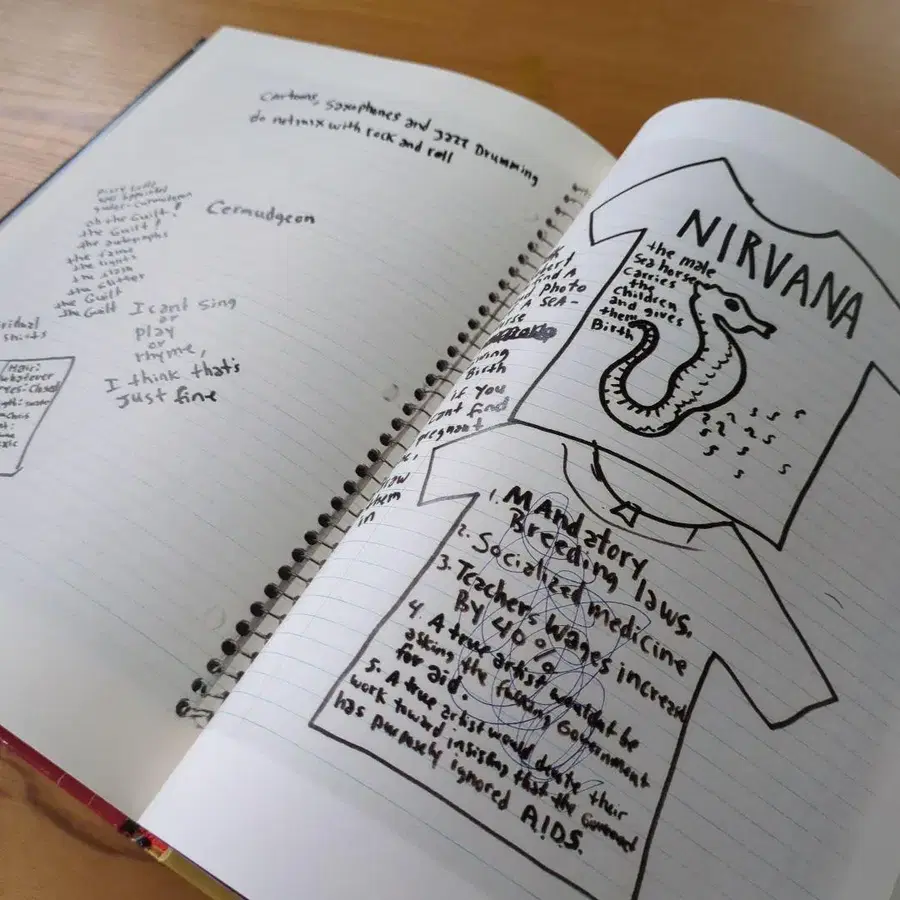 cartoons, saxophones and Jazz Drumming
do not mix with rock and roll
oh the Guilt!
the Guilt!
the autographs
the fame
the lights
the glitter
the Guilt
the Guilt
Cermudgeon
I cant sing
or
play
or
rhyme,
I think thats
Just fine
Hair:
whatever
Photo
A SEA-
Birth
if you
cant find
pregnant
Draw
them
in
NIRVANA
the male
Sea horse
carries
the
children
and gives
them
Birth
1. MAndatory
Breeding laws.
2. Socialized medicine
3. Teachers Wages increased
By 40%
4. A true artist wouldnt be
asking the fucking Government
for aid.
5. A true artist would devote their
work toward insisting that the Goverment
has purposely ignored A.I.D.S.